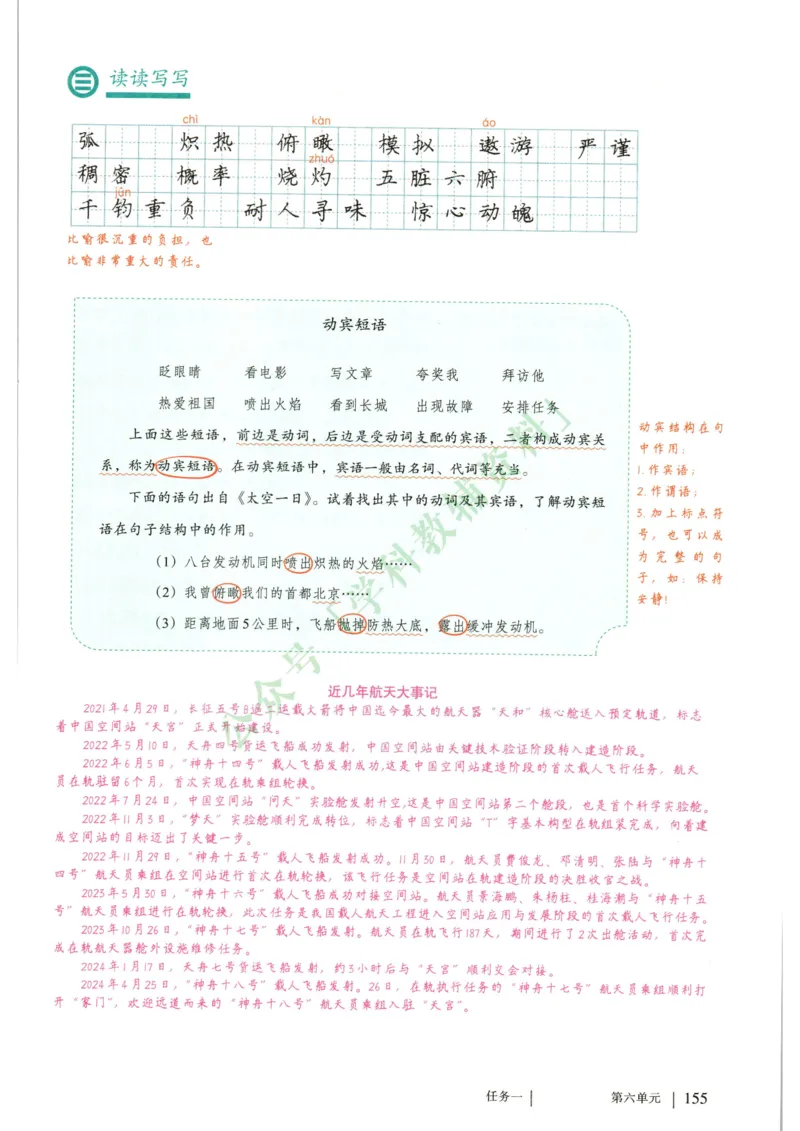 三 读读写写
chì kàn áo
弧 炽热 俯瞰 模拟 遨游 严谨
zhuó
稠密 概率 烧灼 五脏六腑
jūn
千钧重负 耐人寻味 惊心动魄
比喻很沉重的负担，也
比喻非常重大的责任。
动宾短语
眨眼睛 看电影 写文章 夸奖我 拜访他
热爱祖国 喷出火焰 看到长城 出现故障 安排任务
上面这些短语，前边是动词，后边是受动词支配的宾语，二者构成动宾关
系，称为动宾短语。在动宾短语中，宾语一般由名词、代词等充当。
下面的语句出自《太空一日》。试着找出其中的动词及其宾语，了解动宾短
语在句子结构中的作用。
（1）八台发动机同时喷出炽热的火焰……
（2）我曾俯瞰我们的首都北京……
（3）距离地面5公里时，飞船抛掉防热大底，露出缓冲发动机。
动宾结构在句
中作用：
1.作宾语；
2.作谓语；
3.加上标点符
号，也可以成
为完整的句
子，如：保持
安静！
公众号「学科教辅资料」
近几年航天大事记
2021年4月29日，长征五号B遥二运载火箭将中国迄今最大的航天器“天和”核心舱送入预定轨道，标志
着中国空间站“天宫”正式开始建设。
2022年5月10日，天舟四号货运飞船成功发射，中国空间站由关键技术验证阶段转入建造阶段。
2022年6月5日，“神舟十四号”载人飞船发射成功,这是中国空间站建造阶段的首次载人飞行任务，航天
员在轨驻留6个月，首次实现在轨乘组轮换。
2022年7月24日，中国空间站“问天”实验舱发射升空,这是中国空间站第二个舱段，也是首个科学实验舱。
2022年11月3日，“梦天”实验舱顺利完成转位，标志着中国空间站“T”字基本构型在轨组装完成，向着建
成空间站的目标迈出了关键一步。
2022年11月29日，“神舟十五号”载人飞船发射成功。11月30日，航天员费俊龙、邓清明、张陆与“神舟十
四号”航天员乘组在空间站进行首次在轨轮换，该飞行任务是空间站在轨建造阶段的决胜收官之战。
2023年5月30日，“神舟十六号”载人飞船成功对接空间站。航天员景海鹏、朱杨柱、桂海潮与“神舟十五
号”航天员乘组进行在轨轮换，此次任务是我国载人航天工程进入空间站应用与发展阶段的首次载人飞行任务。
2023年10月26日，“神舟十七号”载人飞船发射。航天员在轨飞行187天，期间进行了2次出舱活动，首次完
成在轨航天器舱外设施维修任务。
2024年1月17日，天舟七号货运飞船发射，约3小时后与“天宫”顺利交会对接。
2024年4月25日，“神舟十八号”载人飞船发射。26日，在轨执行任务的“神舟十七号”航天员乘组顺利打
开“家门”，欢迎远道而来的“神舟十八号”航天员乘组入驻“天宫”。
任务一 | 第六单元 | 155